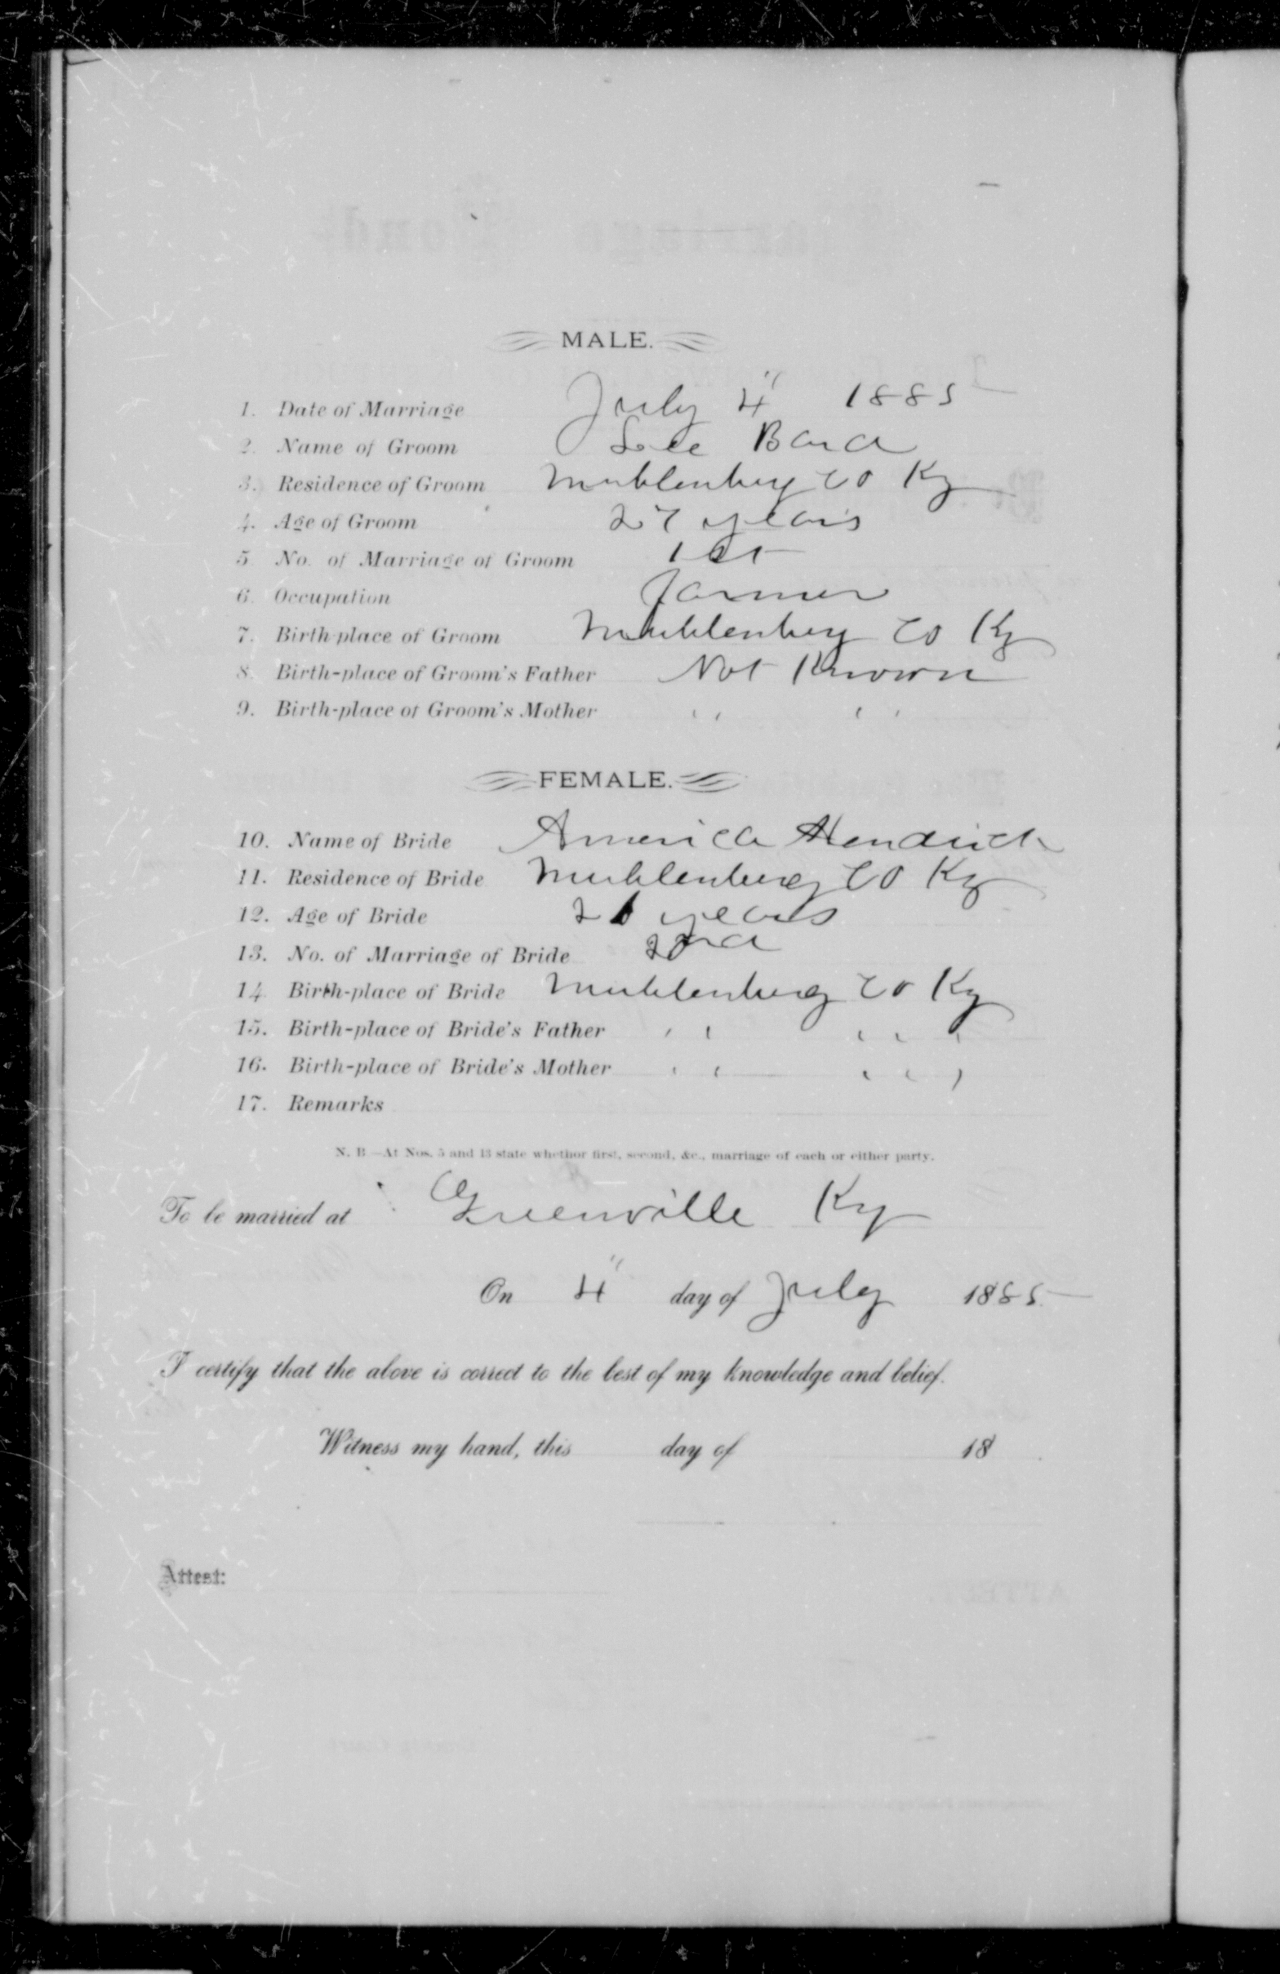 MALE.
1. Date of Marriage July 4" 1885
2. Name of Groom Lee Bard
3. Residence of Groom Muhlenberg Co Ky
4. Age of Groom 27 years
5. No. of Marriage of Groom 1st
6. Occupation Farmer
7. Birth-place of Groom Muhlenberg Co Ky
8. Birth-place of Groom's Father Not Known
9. Birth-place of Groom's Mother " "
FEMALE.
10. Name of Bride America Hendrick
11. Residence of Bride Muhlenberg Co Ky
12. Age of Bride 21 years
13. No. of Marriage of Bride 2nd
14. Birth-place of Bride Muhlenberg Co Ky
15. Birth-place of Bride's Father " " "
16. Birth-place of Bride's Mother " " "
17. Remarks
N. B.—At Nos. 5 and 13 state whether first, second, &c., marriage of each or either party.
To be married at Greenville Ky
On 4" day of July 1885
I certify that the above is correct to the best of my knowledge and belief.
Witness my hand, this day of 18
Attest: